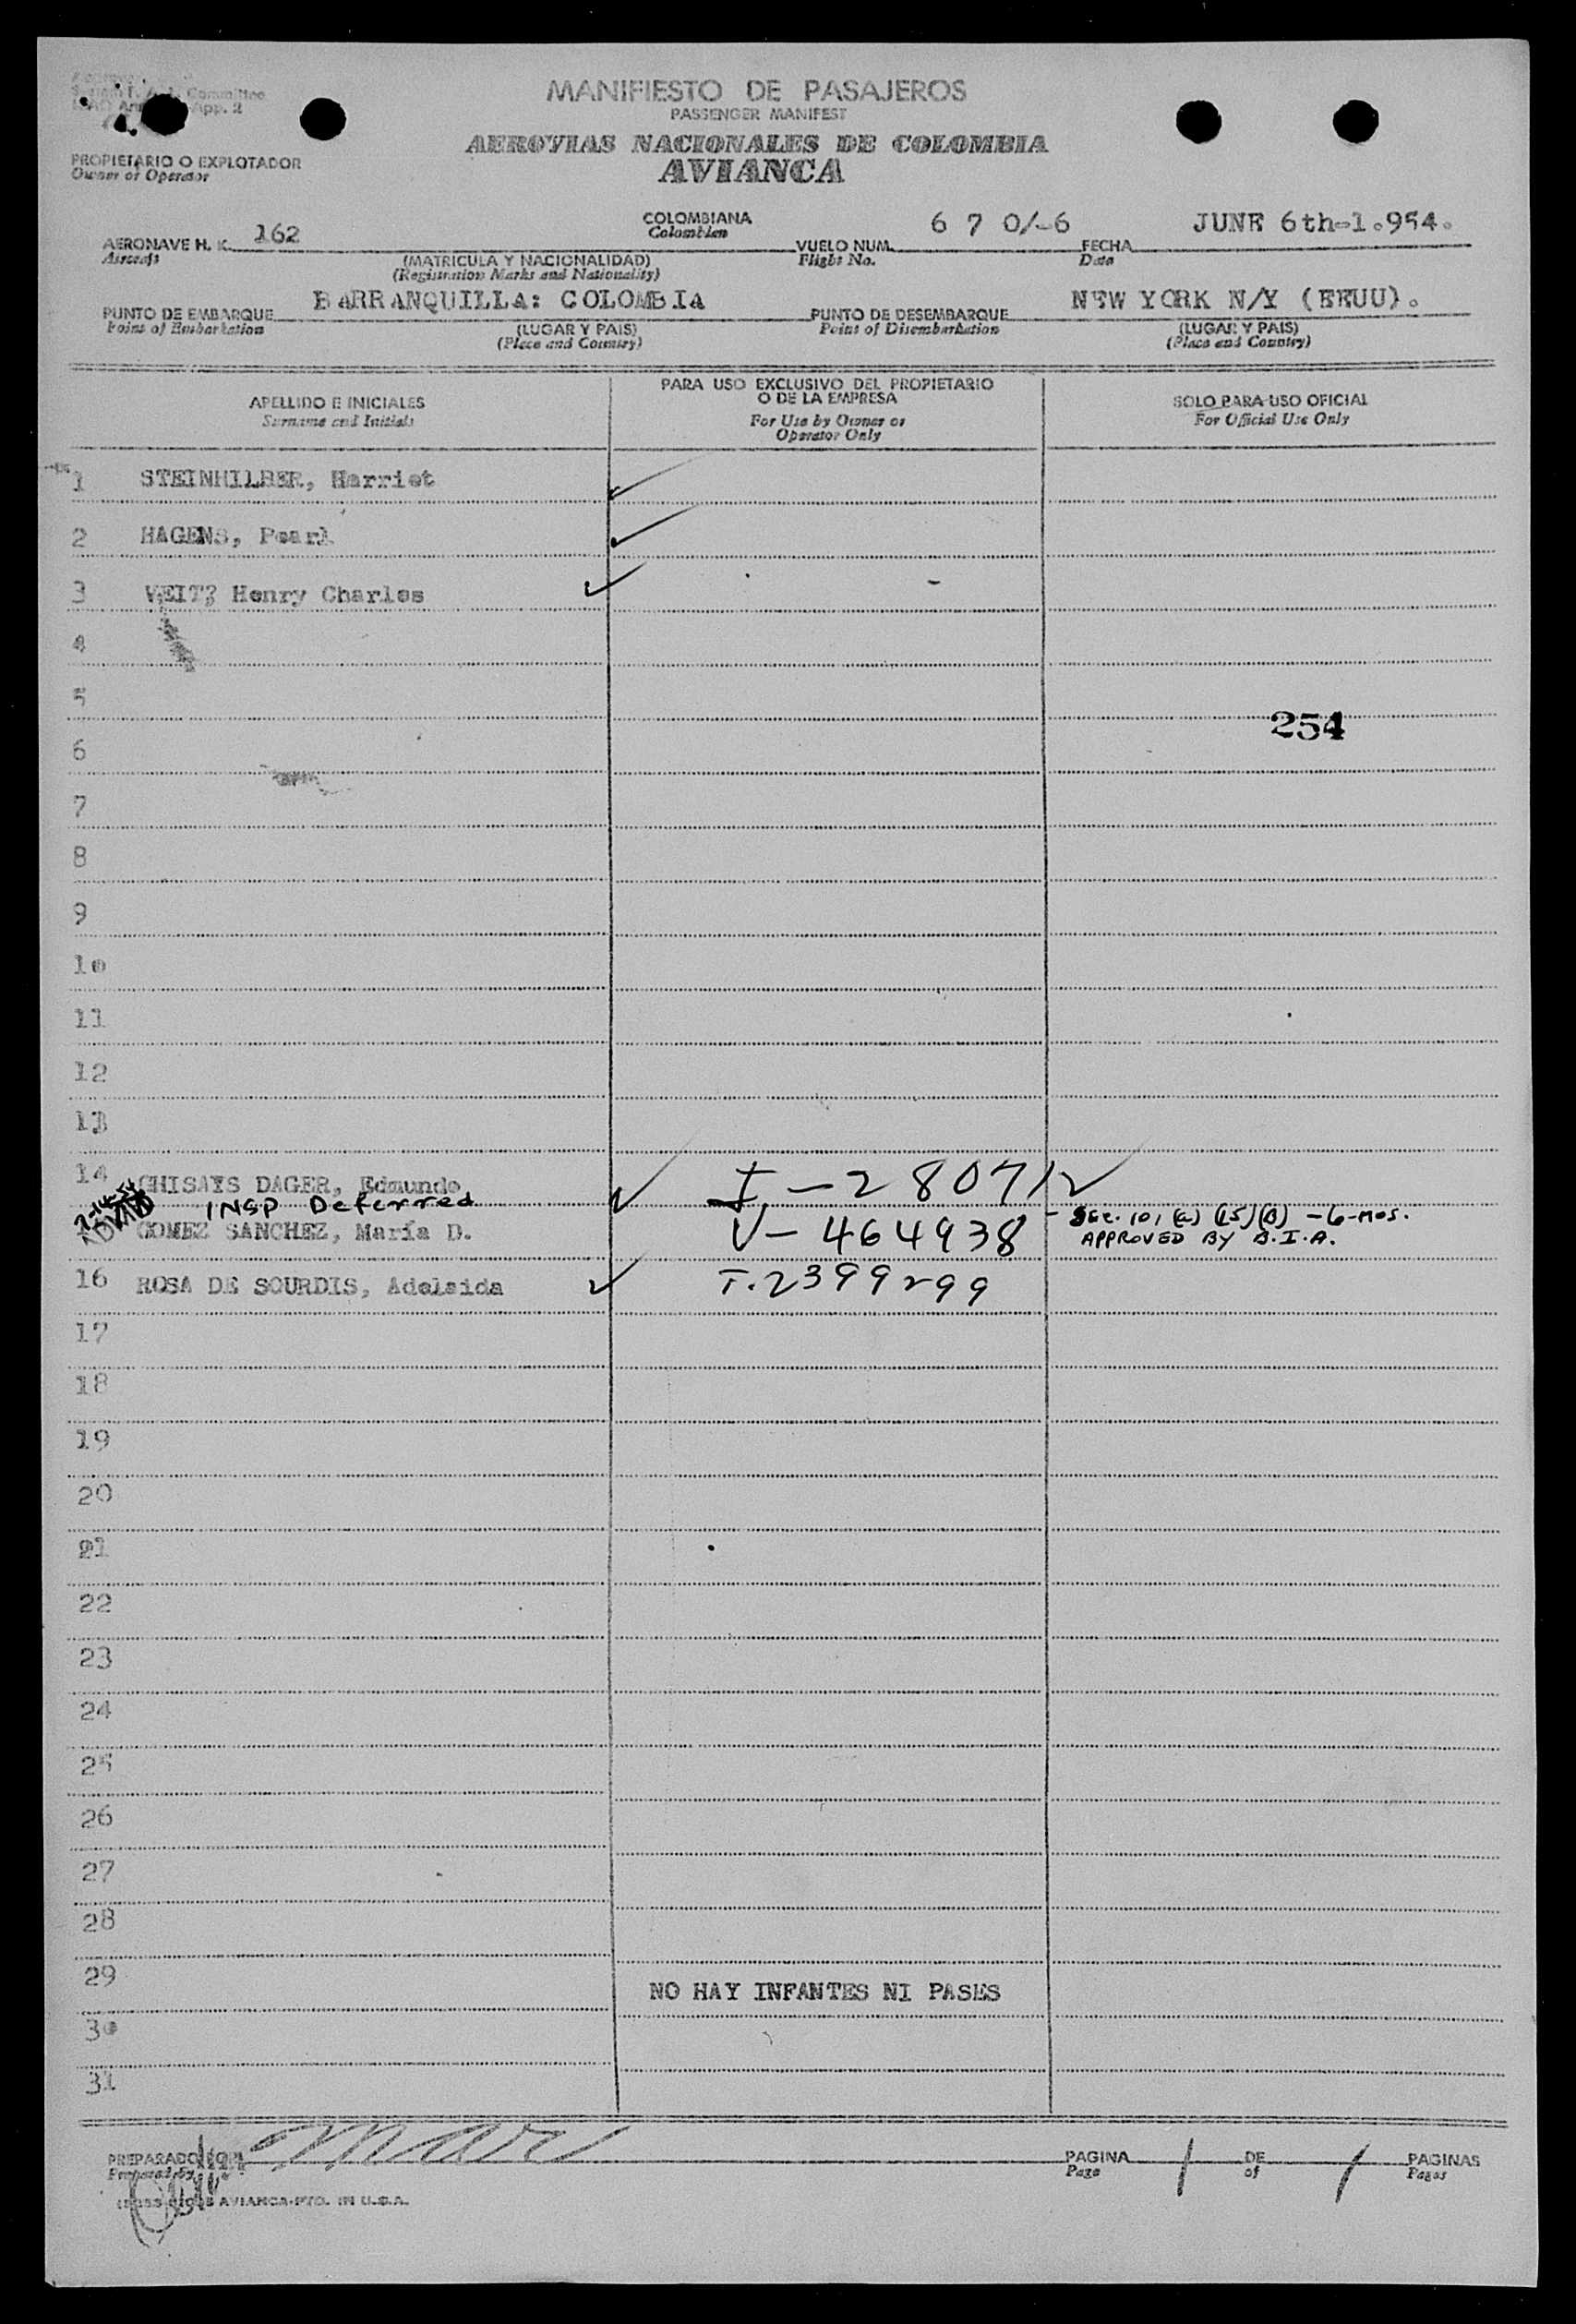 Committee
App. 2
MANIFIESTO DE PASAJEROS
PASSENGER MANIFEST
AEROVIAS NACIONALES DE COLOMBIA
AVIANCA
PROPIETARIO O EXPLOTADOR
Owner or Operator
AERONAVE H. K. 162 COLOMBIANA VUELO NUM. 6 7 0/-6 FECHA JUNE 6th-1.954.
Aircraft Colombian Flight No. Date
(MATRICULA Y NACIONALIDAD)
(Registration Marks and Nationality)
PUNTO DE EMBARQUE BARRANQUILLA: COLOMBIA PUNTO DE DESEMBARQUE NEW YORK N/Y (EEUU).
Point of Embarkation (LUGAR Y PAIS) Point of Disembarkation (LUGAR Y PAIS)
(Place and Country) (Place and Country)
APELLIDO E INICIALES
Surname and Initials
PARA USO EXCLUSIVO DEL PROPIETARIO
O DE LA EMPRESA
For Use by Owner or
Operator Only
SOLO PARA USO OFICIAL
For Official Use Only
1 STEINHILBER, Harriet
2 HAGENS, Pearl
3 VEIT, Henry Charles
4
5
254
6
7
8
9
10
11
12
13
14 GHISAYS DAGER, Edmundo I-280712
INSP Deferred
GOMEZ SANCHEZ, María D. V-464938 - Sec. 101 (a) (15) (B) - 6-mos.
APPROVED BY B.I.A.
16 ROSA DE SOURDIS, Adelaida I.2399299
17
18
19
20
21
22
23
24
25
26
27
28
29 NO HAY INFANTES NI PASES
30
31
PREPARADO POR PAGINA 1 DE 1 PAGINAS
Prepared by Page of Pages
AVIANCA-PTD. IN U.S.A.